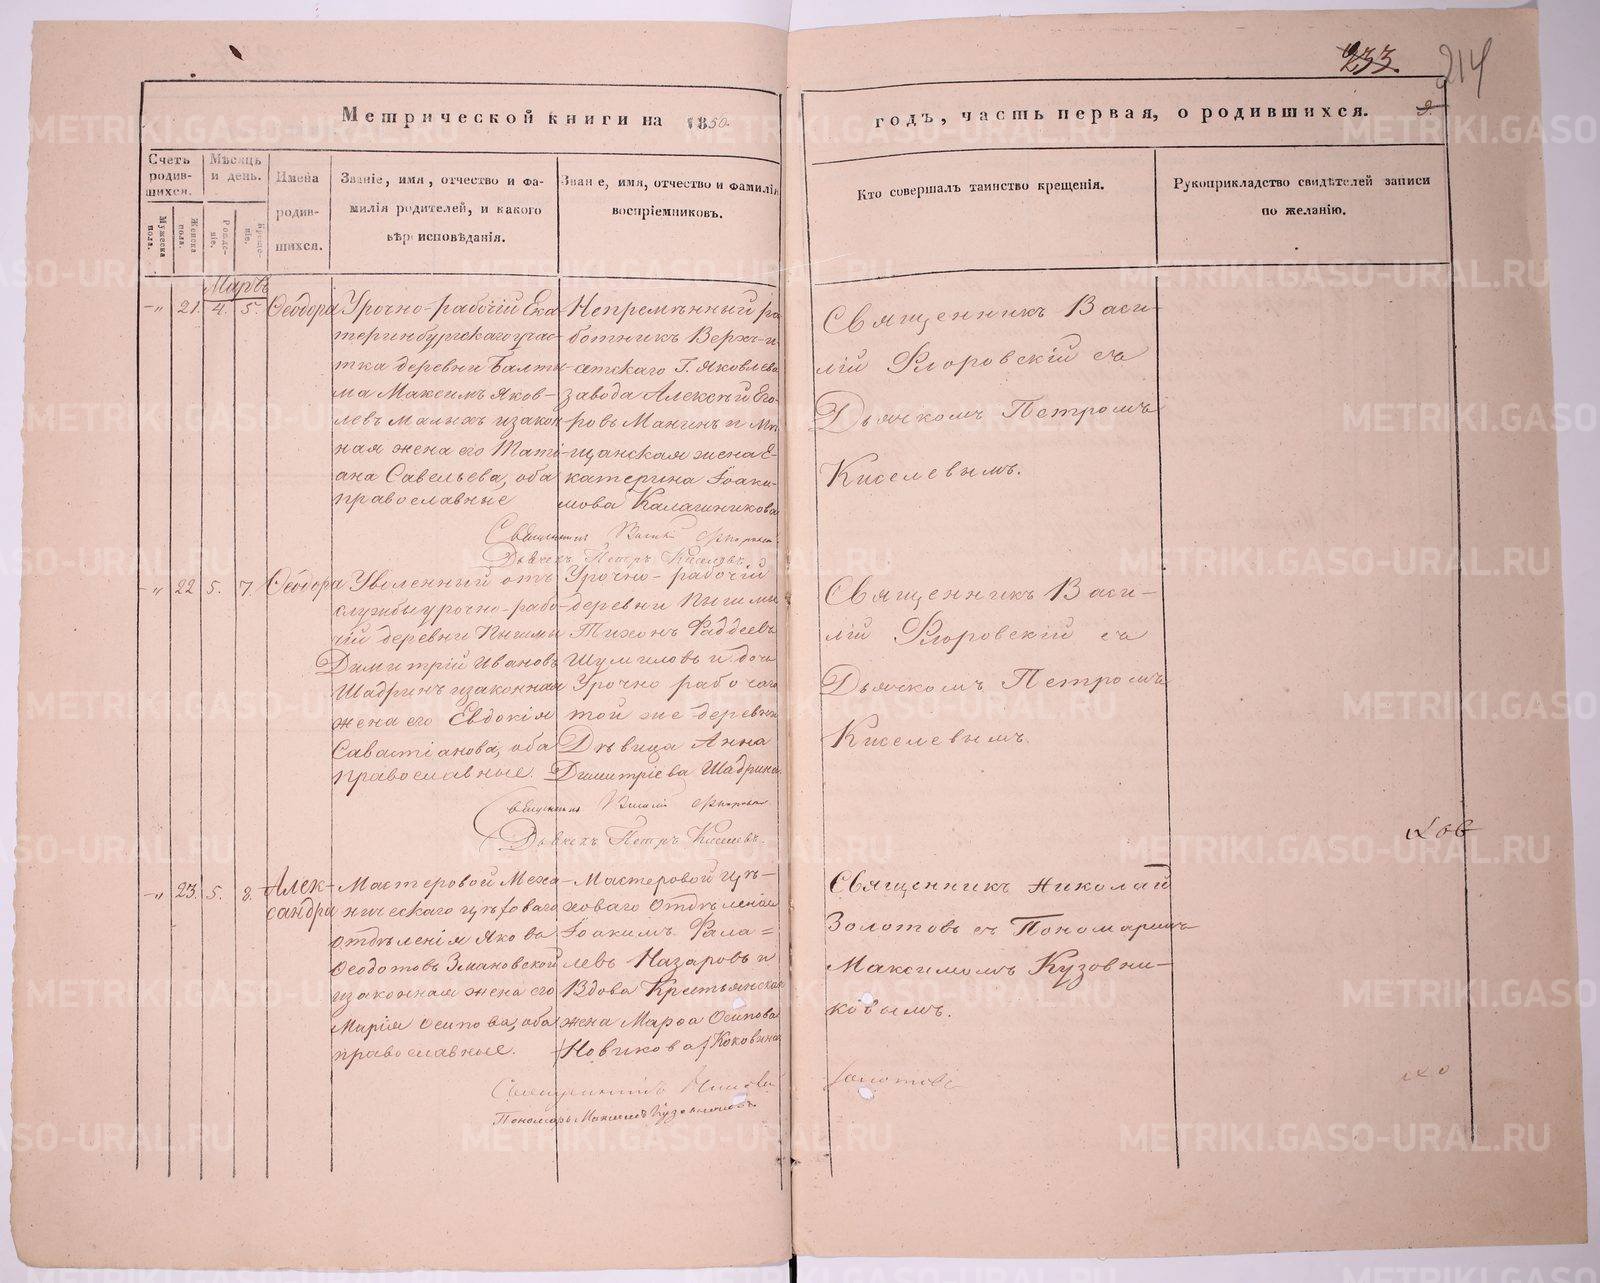 233.
214
Метрической книги на 1850.
годъ, часть первая, о родившихся.
9.
Счетъ родив-шихся.
Мужеска пола.
Женска пола.
Мѣсяць и день.
Рожде-ніе.
Креще-ніе.
Имена родив-шихся.
Званіе, имя, отчество и фа-
милія родителей, и какого
вѣроисповѣданія.
Званіе, имя, отчество и фамилія
воспріемниковъ.
Кто совершалъ таинство крещенія.
Рукоприкладство свидѣтелей записи
по желанію.
Мартъ
-"- 21. 4. 5. Ѳеодора
Урочно-рабочій Ека-
теринбургскаго учас-
тка деревни Балты-
ма Максимъ Яков-
левъ Малыхъ и закон-
ная жена его Тати-
ана Савельева, оба
православные
Непремѣнный ра-
ботникъ Верхъ-и-
сетскаго Г. Яковлева
завода Алексѣй Его-
ровъ Мангинъ и Мѣ-
щанская жена Е-
катерина Іоаки-
мова Калашникова
Священникъ Васи-
лій Флоровскій съ
Дьячкомъ Петромъ
Киселевымъ.
Священникъ Василій Флоровскій
Дьячекъ Петръ Киселевъ.
-"- 22 5. 7. Ѳеодора
Уволенный отъ
службы урочно-рабо-
чій деревни Пышмы
Димитрій Ивановъ
Шадринъ и законная
жена его Евдокія
Савастіанова, оба
православные.
Урочно-рабочій
деревни Пышмы
Тихонъ Фаддеевъ
Шумиловъ и дочь
Урочно рабочаго
той же деревни
Дѣвица Анна
Димитріева Шадрина.
Священникъ Васи-
лій Флоровскій съ
Дьячкомъ Петромъ
Киселевымъ.
Священникъ Василій Флоровскій
Дьячекъ Петръ Киселевъ.
-"- 23. 5. 8. Алек-
сандра
Мастеровой Меха-
ническаго цѣховаго
отдѣленія Яковъ
Ѳеодотовъ Змановской
и законная жена его
Марія Осипова, оба
православные.
Мастеровой цѣ-
ховаго отдѣленія
Іоакимъ Фала-
лѣевъ Назаровъ и
Вдова Крестьянская
жена Марѳа Осипова
Новикова Коковина
Священникъ Николай
Золотовъ съ Пономаремъ
Максимомъ Кузовни-
ковымъ.
Священникъ Николай Золотовъ
Пономарь Максимъ Кузовниковъ.
METRIKI.GASO-URAL.RU